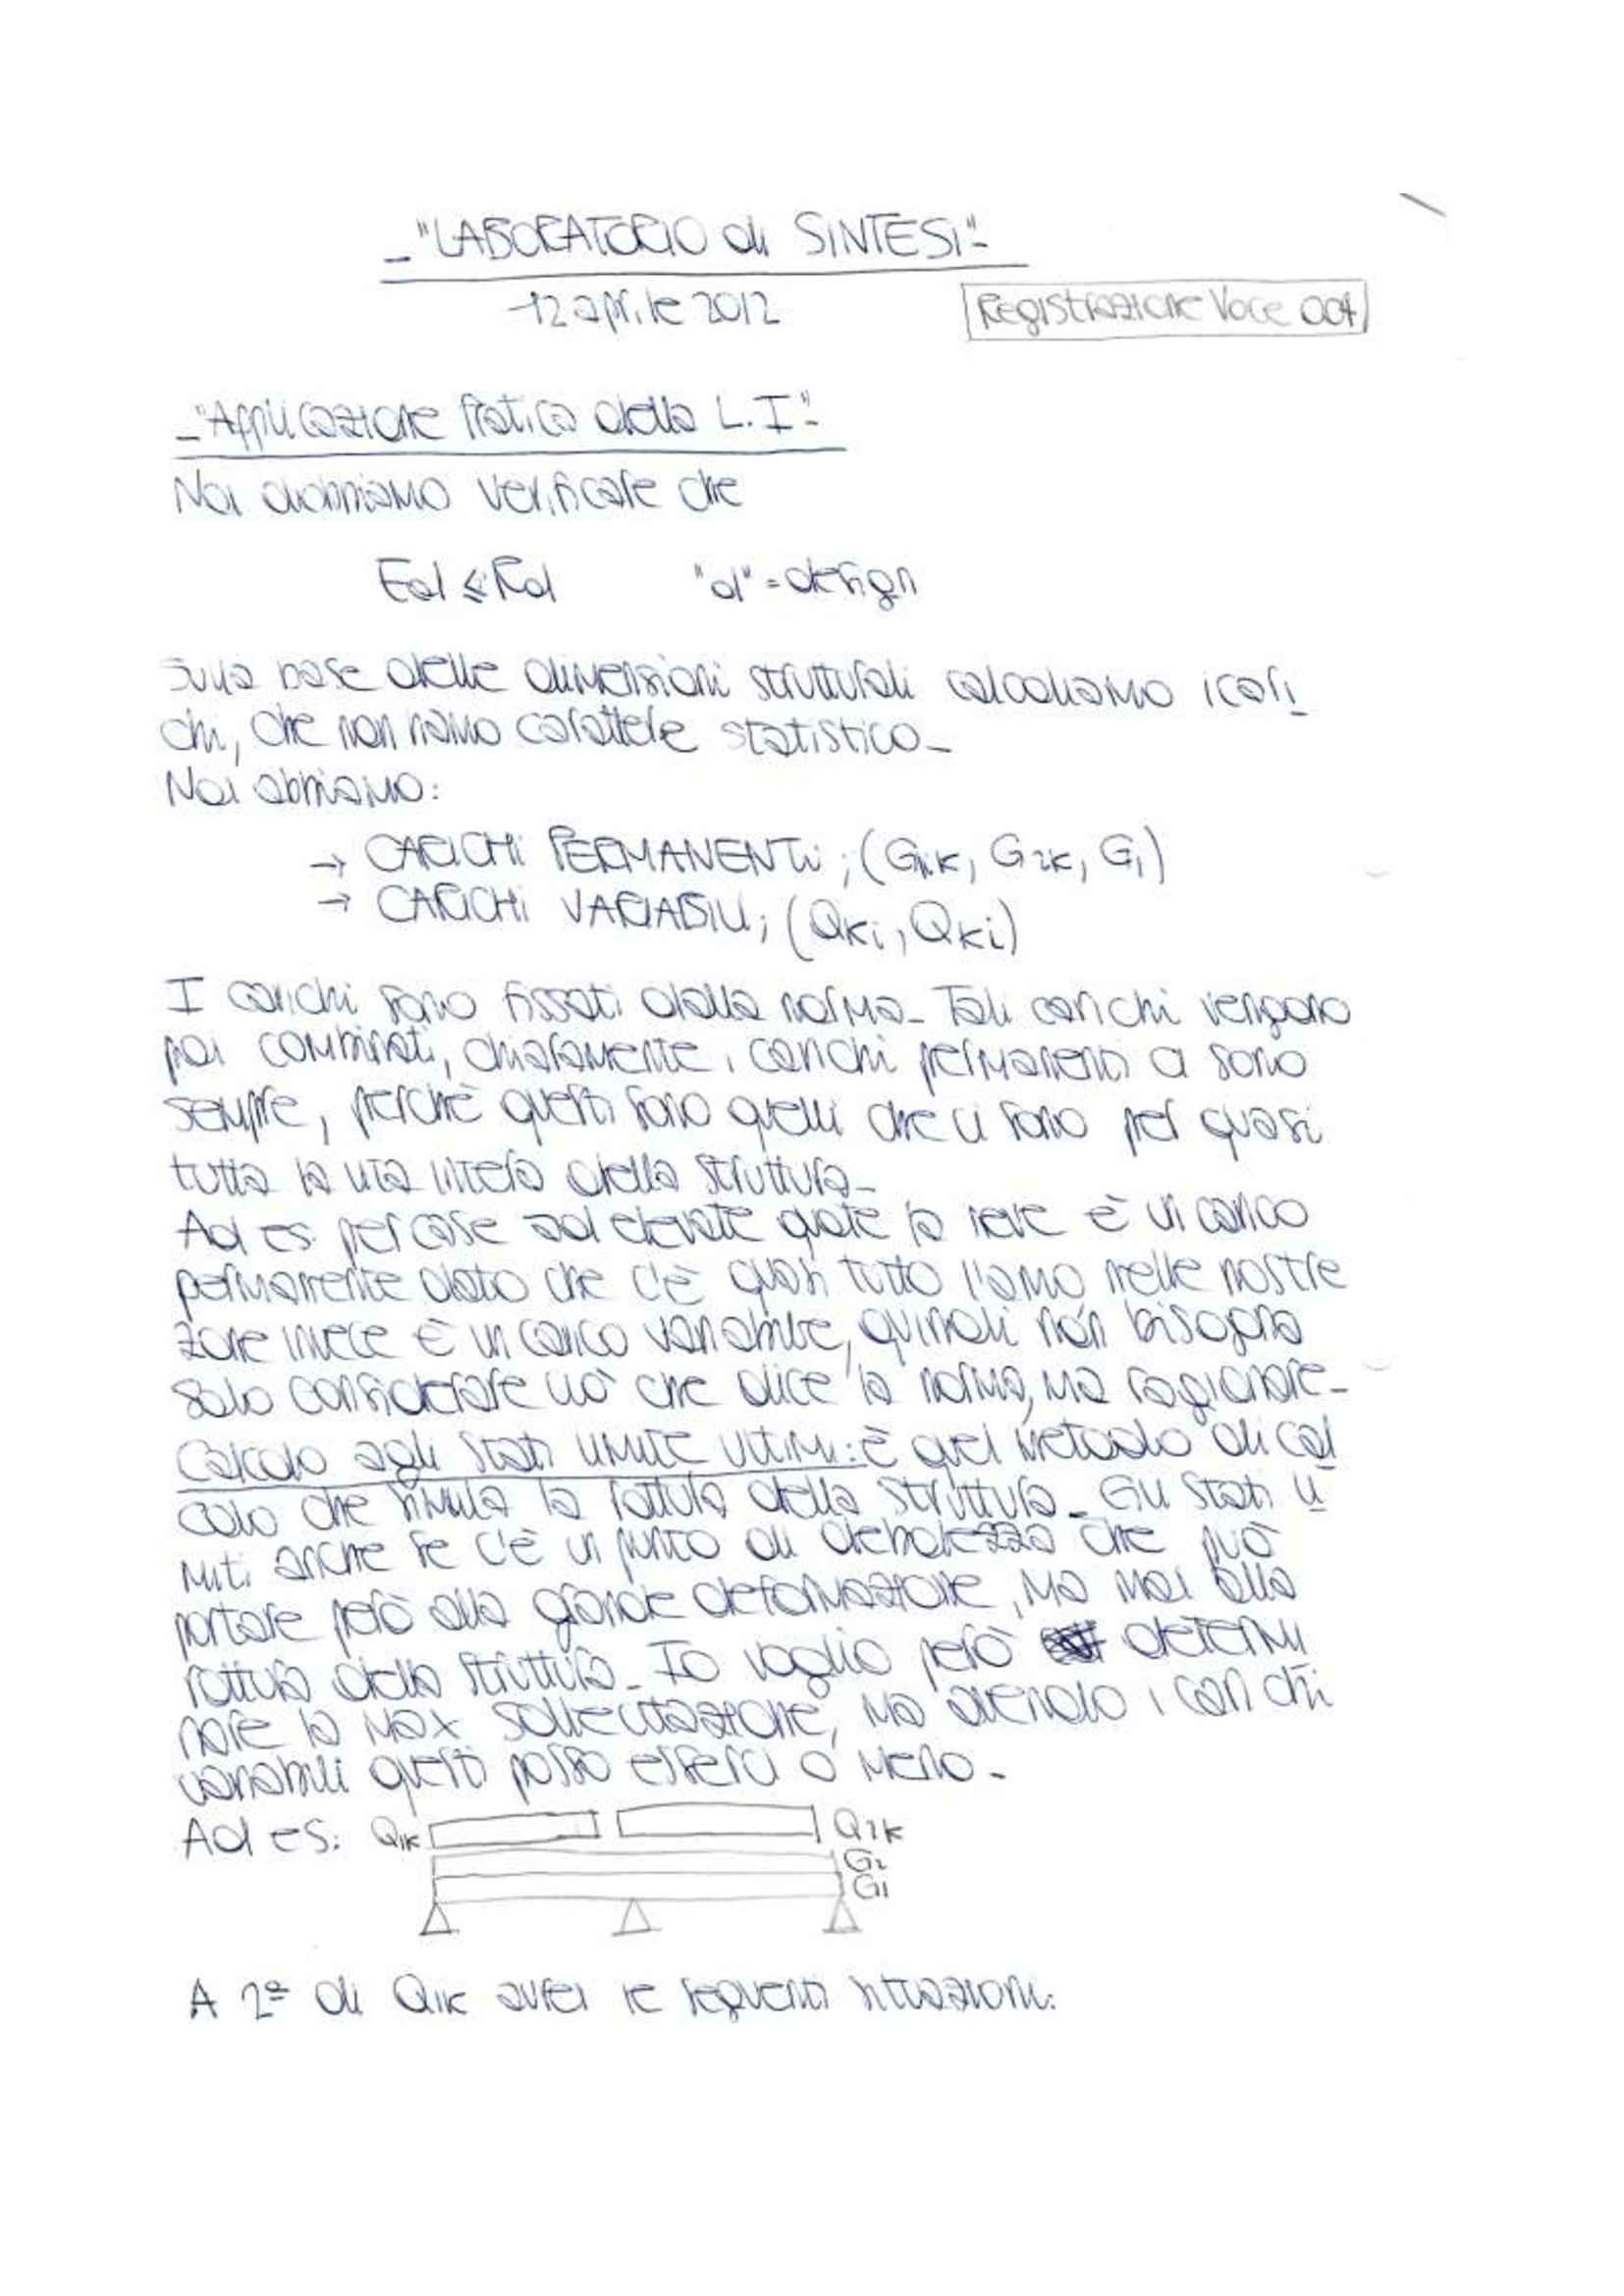 "LABORATORIO di SINTESI"
12 aprile 2012
Registrazione Voce 004
"Applicazione Pratica della L.I"
Noi dobbiamo verificare che
Ed ≤ Rd "d" = design
Sulla base delle dimensioni strutturali calcoliamo i cari
chi, che non hanno carattere statistico_
Noi abbiamo:
→ CARICHI PERMANENTI; (G1K, G2K, G1)
→ CARICHI VARIABILI; (QKi, QKi)
I carichi sono fissati dalla norma_ Tali carichi vengono
poi combinati, chiaramente i carichi permanenti ci sono
sempre, perchè questi sono quelli che ci sono per quasi
tutta la vita intera della struttura_
Ad es. per case ad elevate quote la neve è un carico
permanente dato che c'è quasi tutto l'anno nelle nostre
zone invece è un carico variabile, quindi non bisogna
solo considerare ciò che dice la norma, ma ragionare_
Calcolo agli Stati Limite Ultimi: è quel metodo di cal
colo che simula la rottura della struttura_ Gli Stati li
miti anche se c'è un punto di debolezza che può
portare però alla grande deformazione, ma mai alla
rottura della struttura_ Io voglio però determi
nare la max sollecitazione, ma avendo i carichi
variabili questi posso esserci o meno_
Ad es: Q1K Q2K
G2
G1
A 2ª di Q1K avrei le seguenti situazioni: